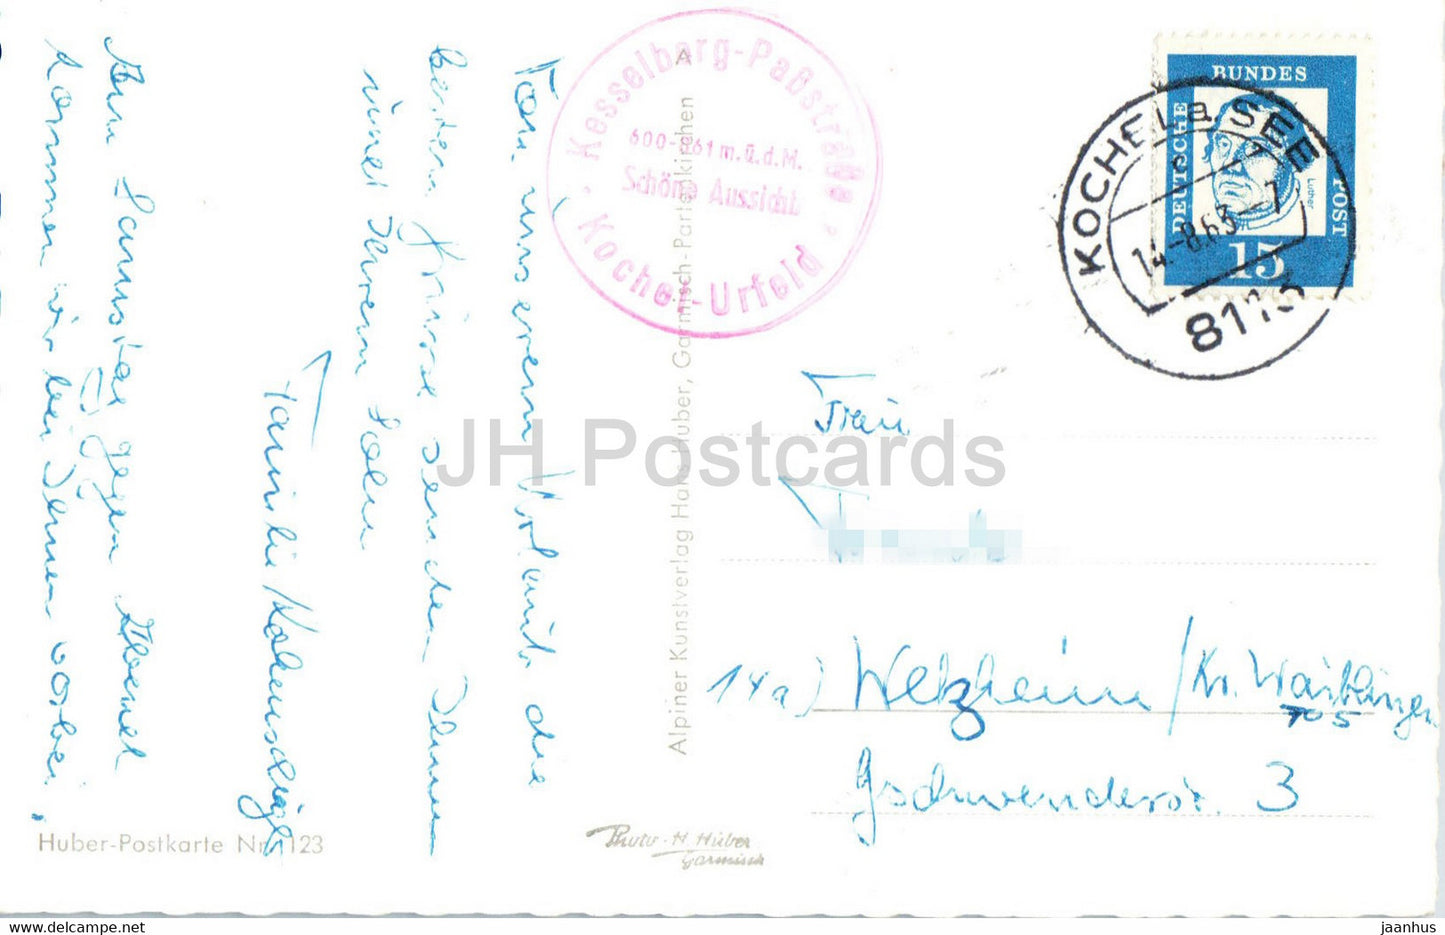 Von unserem Urlaub die
besten Grüsse senden Ihnen
und Ihrem Sohn
Familie
Am Samstag gegen Abend
kommen wir bei Ihnen vorbei.
Huber-Postkarte Nr. 123
Kesselberg-Paßstraße
600-861 m.ü.d.M.
Schöne Aussicht
Kochel-Urfeld
Alpiner Kunstverlag Hans Huber, Garmisch-Partenkirchen
A
Photo-H. Huber
Garmisch
BUNDES
DEUTSCHE
POST
Luther
15
KOCHEL a. SEE
c
14.-8.63-7
8113
Frau
14a) Welzheim / Kr. Waiblingen
705
Gschwenderstr. 3
JH Postcards
jaanhus